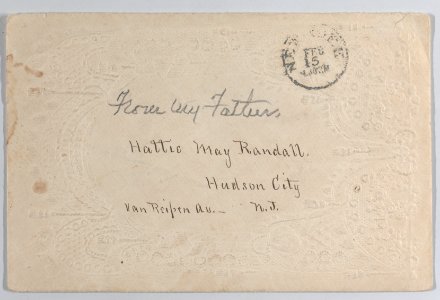 NEW YORK
FEB
15
From My Father,
Hattie May Randall.
Hudson City
Van Reipen Av. — N.J.